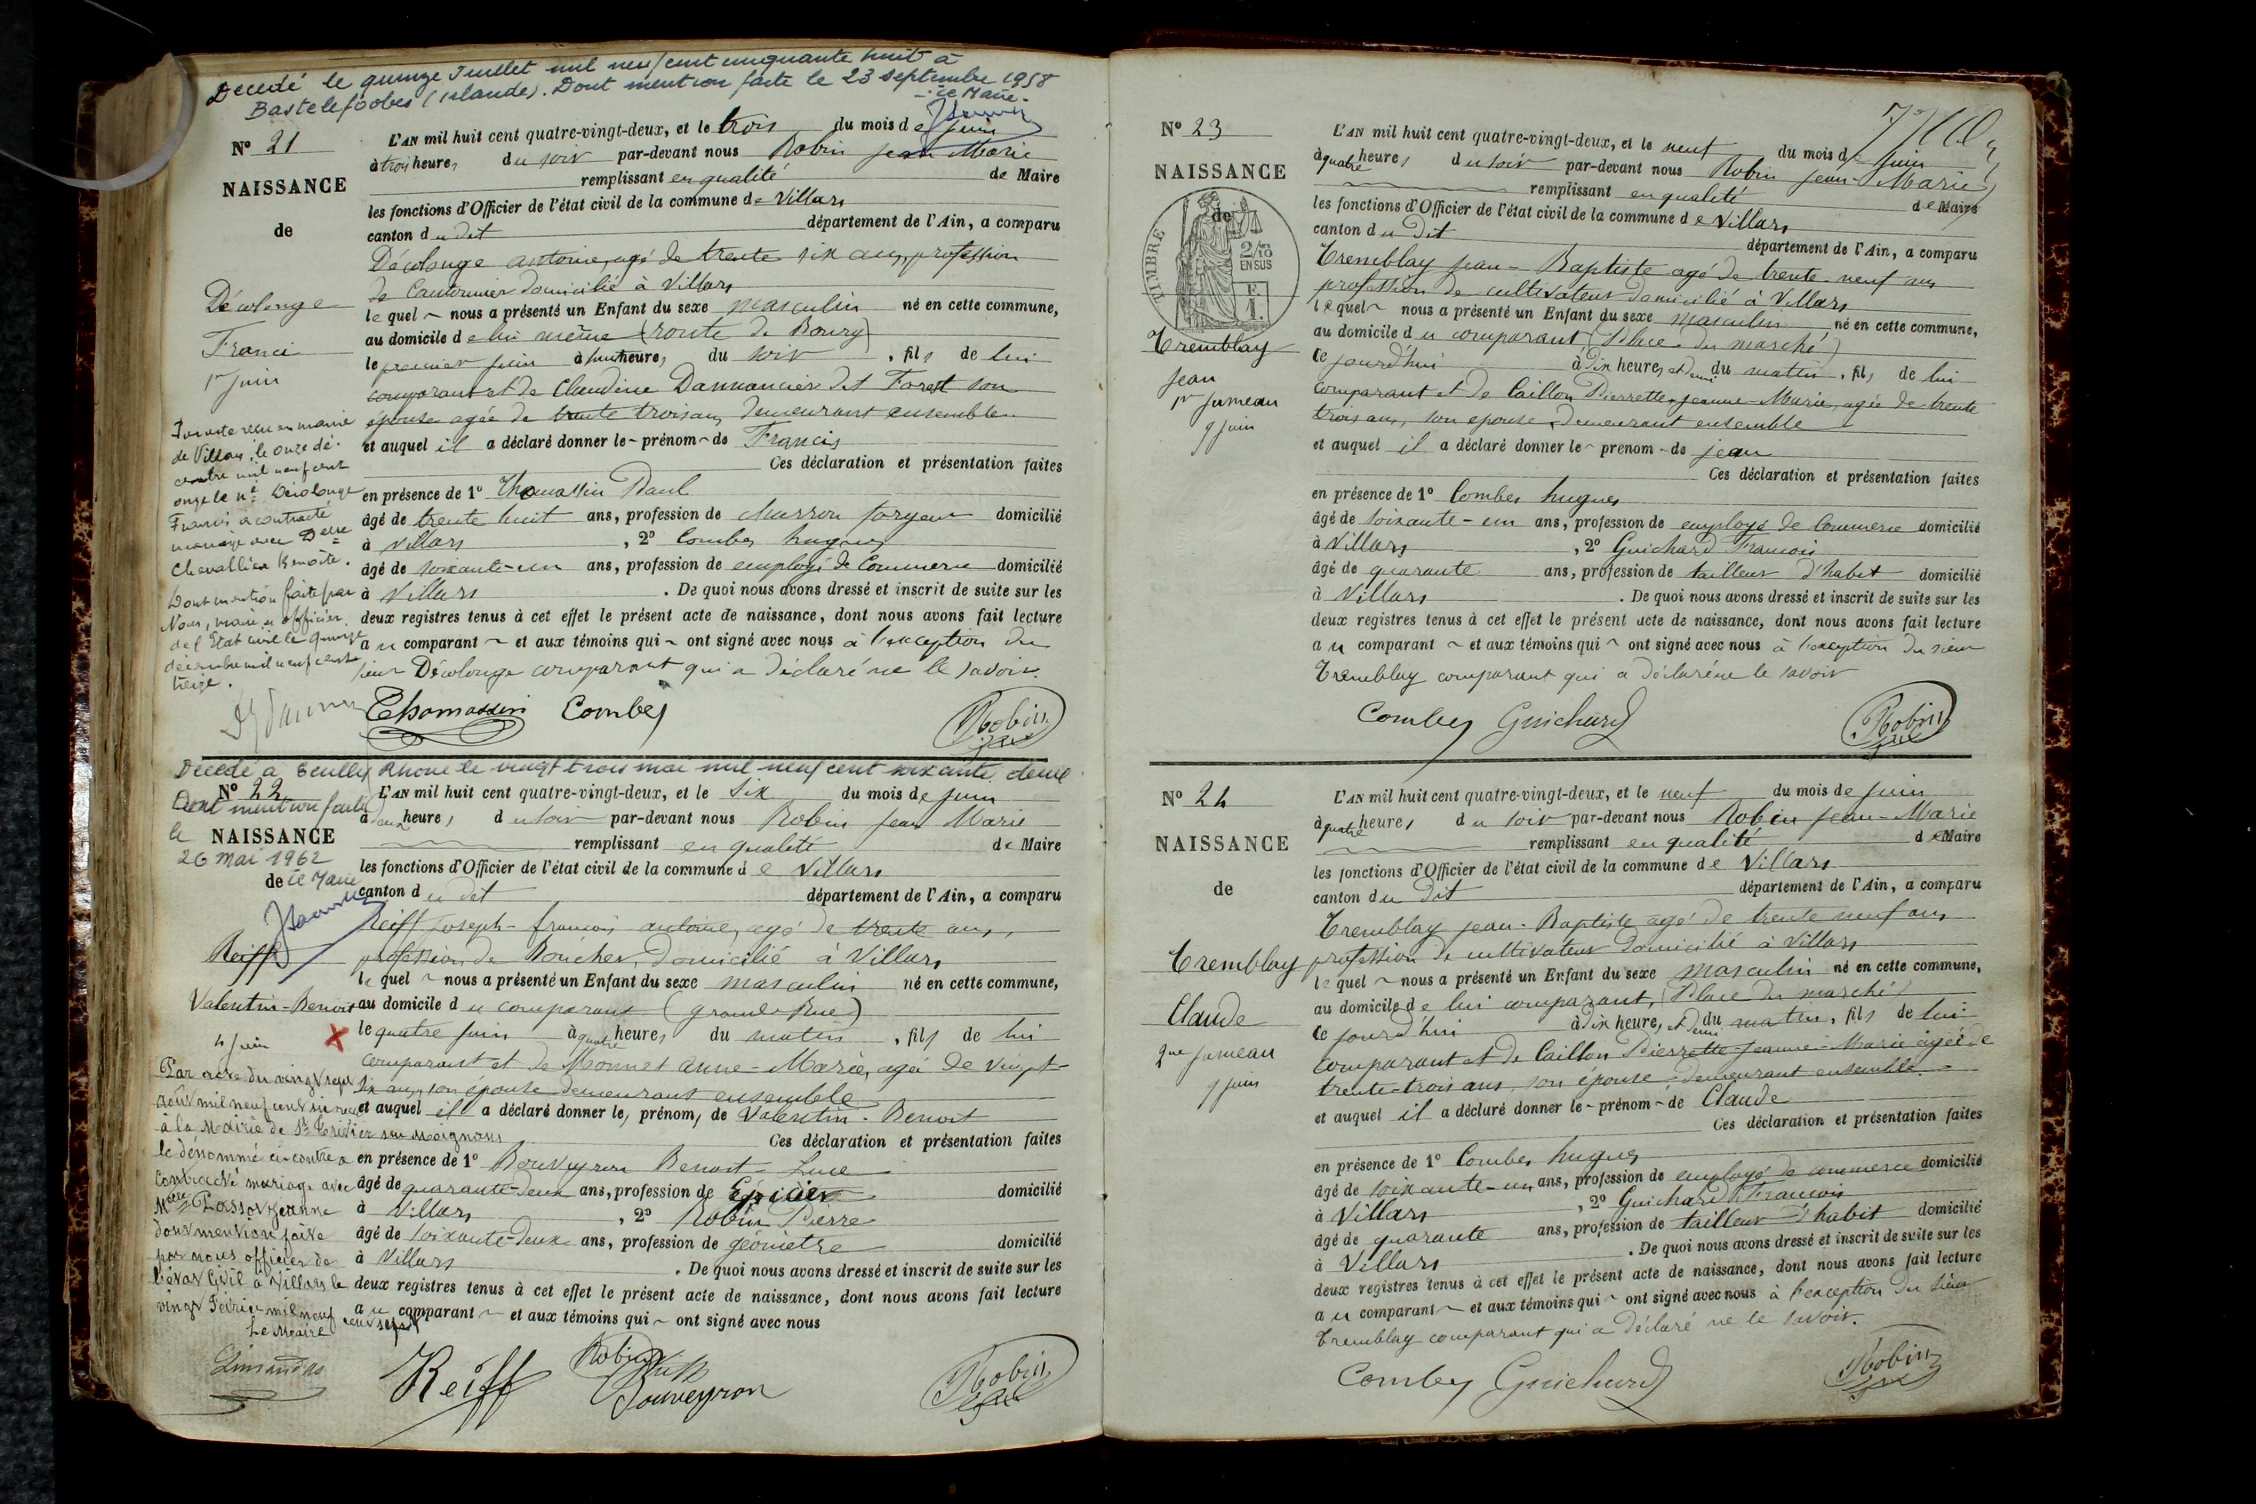 Décédé le quinze Juillet mil neuf cent cinquante huit à
(Islande). Dont mention faite le 23 septembre 1958
Le Maire.
N° 21
NAISSANCE
de
Décolonge
Francis
1er Juin
Par acte reçu en mairie
de Villars, le onze dé-
cembre mil neuf cent
onze le né Décolonge
Francis a contracté
mariage avec Delle
Chevallier Benoite.
Dont mention faite par
Nous, maire et officier
de l'Etat civil le quinze
décembre mil neuf cent
treize.
L'AN mil huit cent quatre-vingt-deux, et le trois du mois de juin
à trois heures du soir par-devant nous Robin Jean Marie
remplissant en qualité de Maire
les fonctions d'Officier de l'état civil de la commune de Villars
canton du dit département de l'Ain, a comparu
Décolonge antoine, agé de trente six ans, profession
de Cantonnier domicilié à Villars
lequel nous a présenté un Enfant du sexe masculin né en cette commune,
au domicile de lui même (route de Bourg)
le premier juin à heures du soir, fils de lui
comparant et de Claudine Dannancier dit Forest son
épouse agée de trente trois ans, demeurant ensemble
et auquel il a déclaré donner le prénom de Francis
Ces déclaration et présentation faites
en présence de 1° Thomassin Paul
âgé de trente huit ans, profession de Marron forgeur domicilié
à Villars, 2° Combes hugues
âgé de soixante-un ans, profession de employé de Commerce domicilié
à Villars. De quoi nous avons dressé et inscrit de suite sur les
deux registres tenus à cet effet le présent acte de naissance, dont nous avons fait lecture
au comparant et aux témoins qui ont signé avec nous à l'exception du
sieur Décolonge comparant qui a déclaré ne le savoir.
Thomassin Combes Robin
Décédé à Ecully Rhône le vingt trois mai mil neuf cent soixante deux
Dont mention faite
le
26 Mai 1962
Le Maire
N° 22
NAISSANCE
de
Reiff
Valentin-Benoit
4 Juin
Par acte du vingt sept
août mil neuf cent six reçu
à la Mairie de St Trivier sur Moignans
le dénommé ci-contre a
contracté mariage avec
Melle Possot Jeanne
dont mention faite
par nous officier de
l'état civil à Villars le
vingt Février mil neuf
cent sept
Le Maire
L'AN mil huit cent quatre-vingt-deux, et le Six du mois de juin
à deux heures du soir par-devant nous Robin Jean Marie
remplissant en qualité de Maire
les fonctions d'Officier de l'état civil de la commune de Villars
canton du dit département de l'Ain, a comparu
Reiff Joseph-françois antoine, agé de trente ans,
profession de Boucher, domicilié à Villars
lequel nous a présenté un Enfant du sexe masculin né en cette commune,
au domicile du comparant (grande Rue)
le quatre juin à quatre heures du matin, fils de lui
comparant et de Monnet anne-Marie, agée de vingt-
six ans, son épouse demeurant ensemble
et auquel il a déclaré donner les prénoms de Valentin-Benoit
Ces déclaration et présentation faites
en présence de 1° Bouveyron Benoit-Luce
âgé de quarante-deux ans, profession de Epicier domicilié
à Villars, 2° Robin Pierre
âgé de soixante-deux ans, profession de géomètre domicilié
à Villars. De quoi nous avons dressé et inscrit de suite sur les
deux registres tenus à cet effet le présent acte de naissance, dont nous avons fait lecture
au comparant et aux témoins qui ont signé avec nous
Reiff Robin Bouveyron Robin
N° 23
NAISSANCE
de
TIMBRE
2/10
EN SUS
F.
1.
Tremblay
Jean
1er Jumeau
9 juin
L'AN mil huit cent quatre-vingt-deux, et le neuf du mois de juin
à quatre heures du soir par-devant nous Robin Jean-Marie
remplissant en qualité de Maire
les fonctions d'Officier de l'état civil de la commune de Villars
canton du Dit département de l'Ain, a comparu
Tremblay jean-Baptiste agé de trente-neuf ans
profession de cultivateur domicilié à Villars
lequel nous a présenté un Enfant du sexe masculin né en cette commune,
au domicile du comparant (Place du marché)
ce jourd'hui à dix heures et demi du matin, fils de lui
comparant et de Caillon Pierrette-jeanne-Marie, agée de trente
trois ans, son epouse, demeurant ensemble
et auquel il a déclaré donner le prenom de jean
Ces déclaration et présentation faites
en présence de 1° Combes hugues
âgé de soixante-un ans, profession de employé de Commerce domicilié
à Villars, 2° Guichard François
âgé de quarante ans, profession de tailleur d'habit domicilié
à Villars. De quoi nous avons dressé et inscrit de suite sur les
deux registres tenus à cet effet le présent acte de naissance, dont nous avons fait lecture
au comparant et aux témoins qui ont signé avec nous à l'exception du sieur
Tremblay comparant qui a déclaré ne le savoir
Combes Guichard Robin
N° 24
NAISSANCE
de
Tremblay
Claude
2me jumeau
9 juin
L'AN mil huit cent quatre-vingt-deux, et le neuf du mois de juin
à quatre heures du soir par-devant nous Robin Jean-Marie
remplissant en qualité de Maire
les fonctions d'Officier de l'état civil de la commune de Villars
canton du Dit département de l'Ain, a comparu
Tremblay jean-Baptiste agé de trente neuf ans
profession de cultivateur domicilié à Villars
lequel nous a présenté un Enfant du sexe masculin né en cette commune,
au domicile de lui comparant, (Place du marché)
ce jourd'hui à dix heures et demi du matin, fils de lui
comparant et de Caillon Pierrette-jeanne-Marie agée de
trente-trois ans, son épouse, demeurant ensemble
et auquel il a déclaré donner le prénom de Claude
Ces déclaration et présentation faites
en présence de 1° Combes hugues
âgé de soixante-un ans, profession de employé de commerce domicilié
à Villars, 2° Guichard François
âgé de quarante ans, profession de tailleur d'habit domicilié
à Villars. De quoi nous avons dressé et inscrit de suite sur les
deux registres tenus à cet effet le présent acte de naissance, dont nous avons fait lecture
au comparant et aux témoins qui ont signé avec nous à l'exception du Sieur
Tremblay comparant qui a déclaré ne le savoir.
Combes Guichard Robin